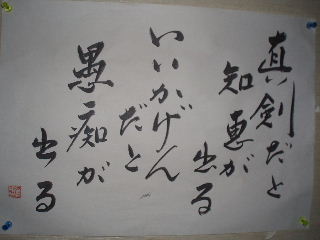 真剣だと
知恵が
出る
いいかげん
だと
愚痴が
出る